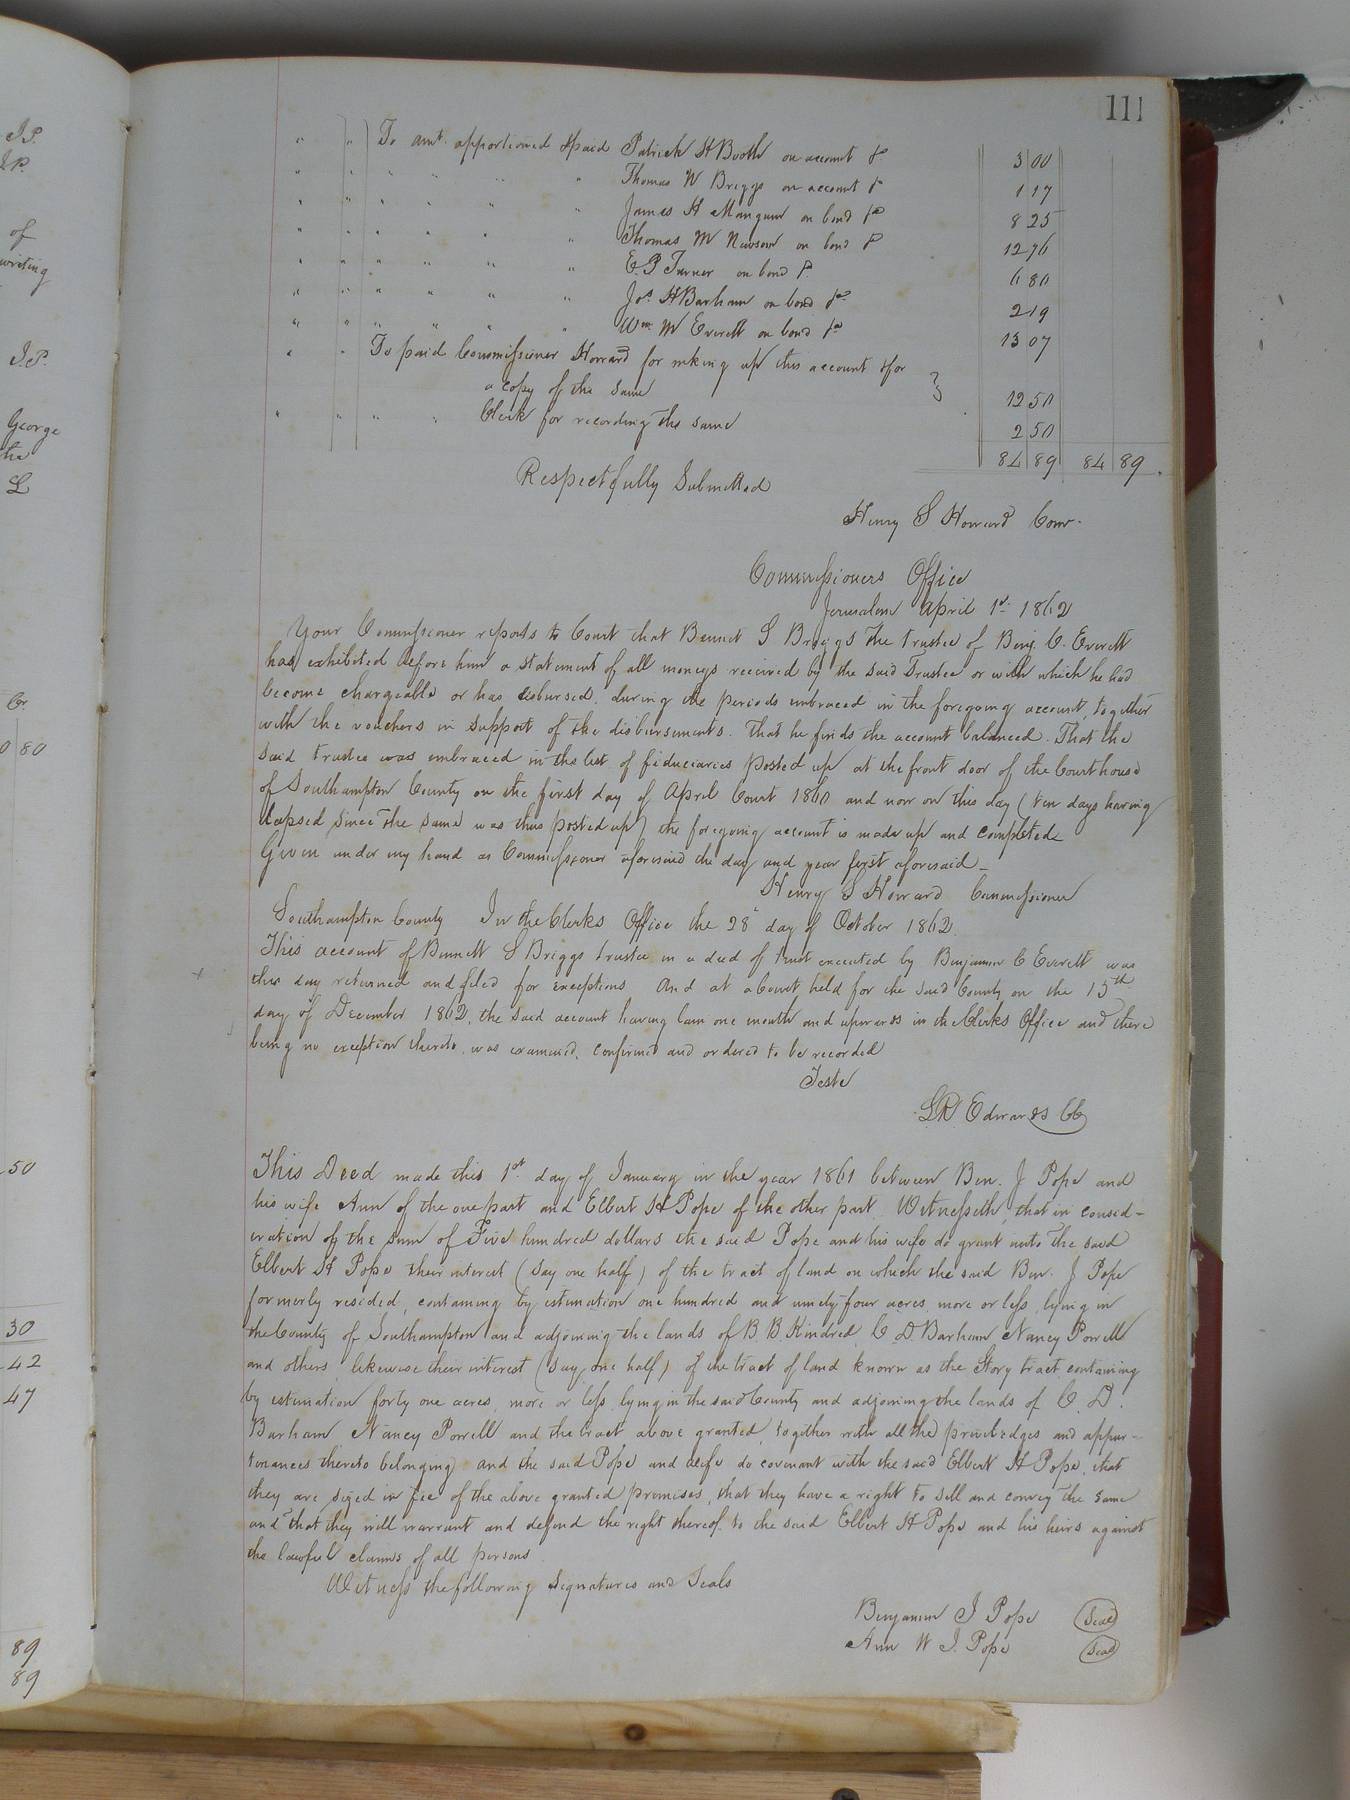 111
" " To amt. apportioned & paid Patrick H Booth on account &c 3 00
" " " " " " Thomas W Briggs on account &c 1 17
" " " " " " James H Mangum on bond &c 8 25
" " " " " " Thomas M Newsom on bond &c 12 76
" " " " " " E. P Turner on bond &c 6 80
" " " " " " Jos. H Barham on bond &c 2 19
" " " " " " Wm. M Everett on bond &c 13 07
" " To paid Commissioner Howard for making up this account & for
a copy of the same } 12 50
" " " " Clerk for recording the same 2 50
84 89 84 89.
Respectfully Submitted
Henry S Howard Comr.
Commissioners Office
Jerusalem April 1st. 1862
Your Commissioner reports to Court that Bennet S Briggs the trustee of Benj. C. Everett
has exhibited before him a statement of all moneys received by the said Trustee or with which he had
become chargeable or has disbursed, during the periods embraced in the foregoing account, together
with the vouchers in support of the disbursements. That he finds the account balanced. That the
said trustee was embraced in the list of fiduciaries posted up at the front door of the Courthouse
of Southampton County on the first day of April Court 1860 and now on this day (ten days having
elapsed since the same was thus posted up) the foregoing account is made up and completed
Given under my hand as Commissioner aforesaid the day and year first aforesaid_
Henry S Howard Commissioner
Southampton County In the Clerks Office the 28 day of October 1862.
This account of Bennett S Briggs trustee in a deed of trust executed by Benjamin C Everett was
this day returned and filed for exceptions And at a Court held for the said County on the 15th
day of December 1862, the said account having lain one month and upwards in the Clerks Office and there
being no exception thereto, was examined, confirmed and ordered to be recorded
Teste
LR Edwards CC
This Deed made this 1st day of January in the year 1861 between Ben. J Pope and
his wife Ann of the one part and Elbert H Pope of the other part. Witnesseth, that in consid-
eration of the sum of Five hundred dollars the said Pope and his wife do grant unto the said
Elbert H Pope their interest (say one half) of the tract of land on which the said Ben. J Pope
formerly resided, containing by estimation one hundred and ninety four acres, more or less, lying in
the County of Southampton and adjoining the lands of B. B. Kindred, C. D. Barham Nancy Powell
and others, likewise their interest (say one half) of the tract of land known as the Story tract, containing
by estimation forty one acres, more or less, lying in the said County and adjoining the lands of C. D.
Barham Nancy Powell and the tract above granted, together with all the priviledges and appur-
tenances thereto belonging and the said Pope and wife do covenant with the said Elbert H Pope, that
they are sized in fee of the above granted premises, that they have a right to sell and convey the same
and that they will warrant and defend the right thereof to the said Elbert H Pope and his heirs against
the lawful claims of all persons
Witness the following signatures and Seals
Benjamin J Pope Seal
Ann W J. Pope Seal
J.P.
J.P.
of
writing
J.P.
George
the
L
Cr.
0 80
50
30
42
47
89
89